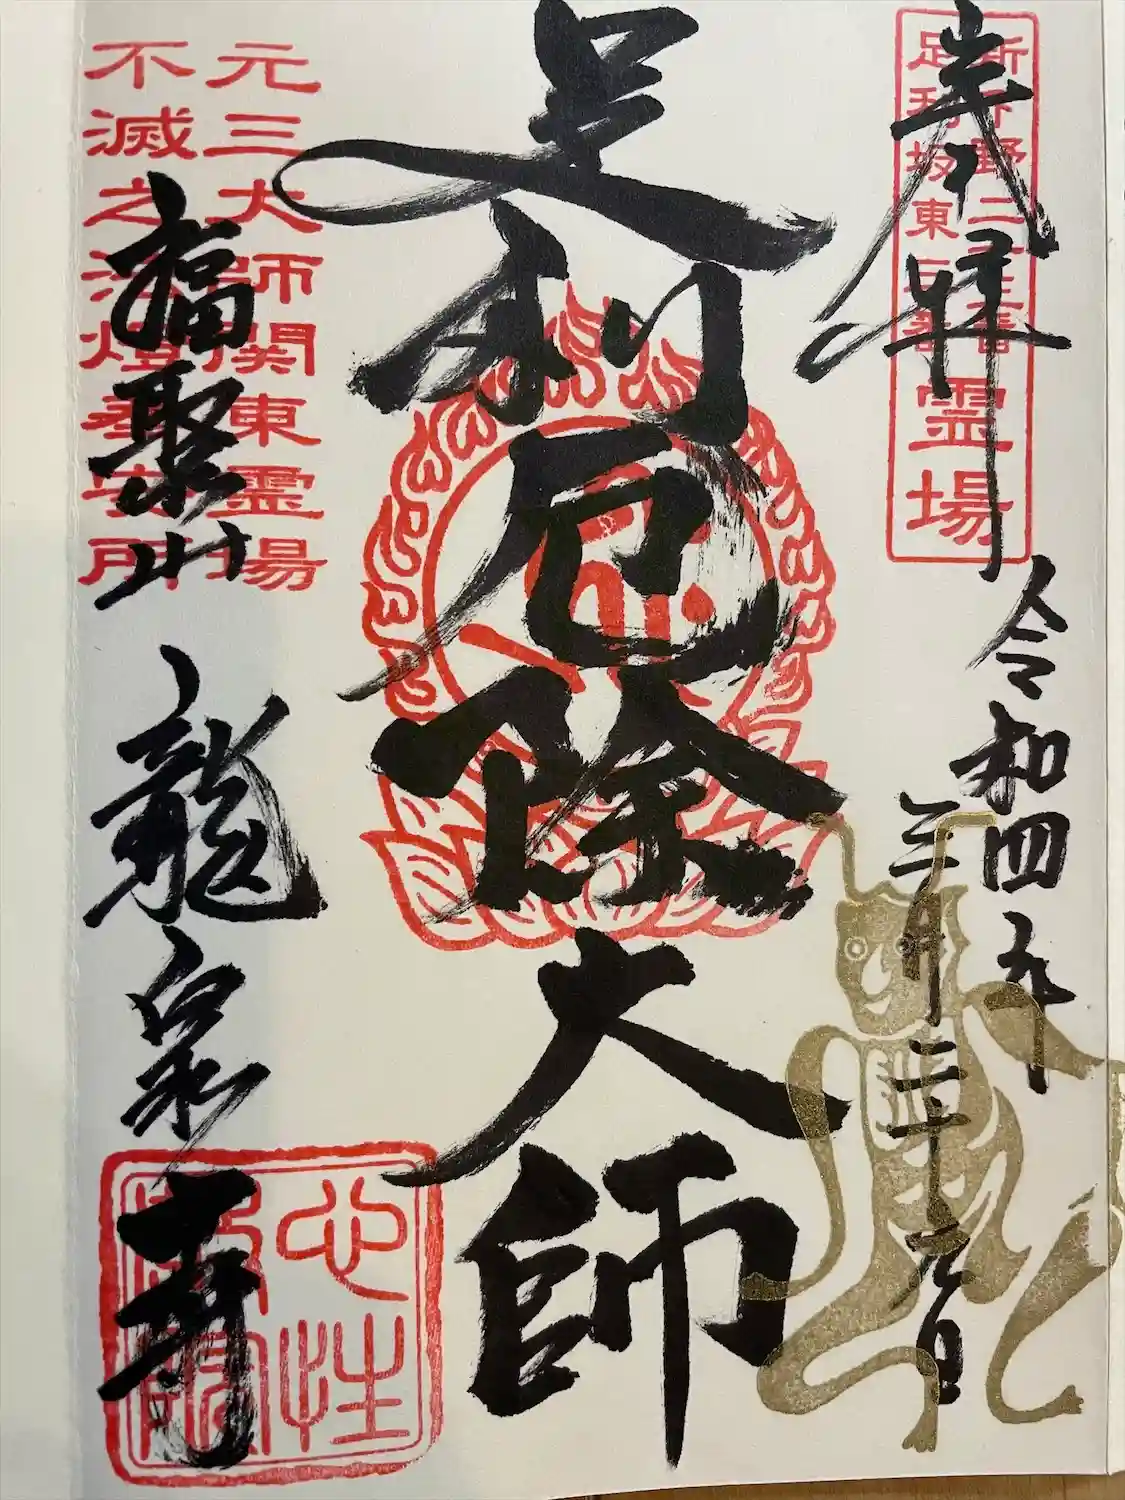 奉拝
新下野三十三番霊場
足利坂東
霊場
令和四年
三月二十六日
足利厄除大師
元三大師関東霊場
不滅之法燈奉安所
福聚山
龍泉寺
心性